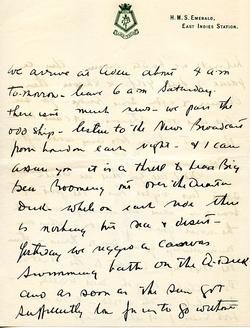 H.M.S. EMERALD,
EAST INDIES STATION.
we arrive at Aden about 4 am
tomorrow - leave 6 am Saturday.
there isn't much news - we pass the
odd ship - listen to the News Broadcast
from London each night - & I can
assure you it is a thrill to hear Big
Ben Booming out over the Quarter
Deck while on each side there
is nothing but sea & desert -
Yesterday we rigged a canvas
swimming bath on the Q. Deck
and as soon as the sun got
sufficiently low for us to go without